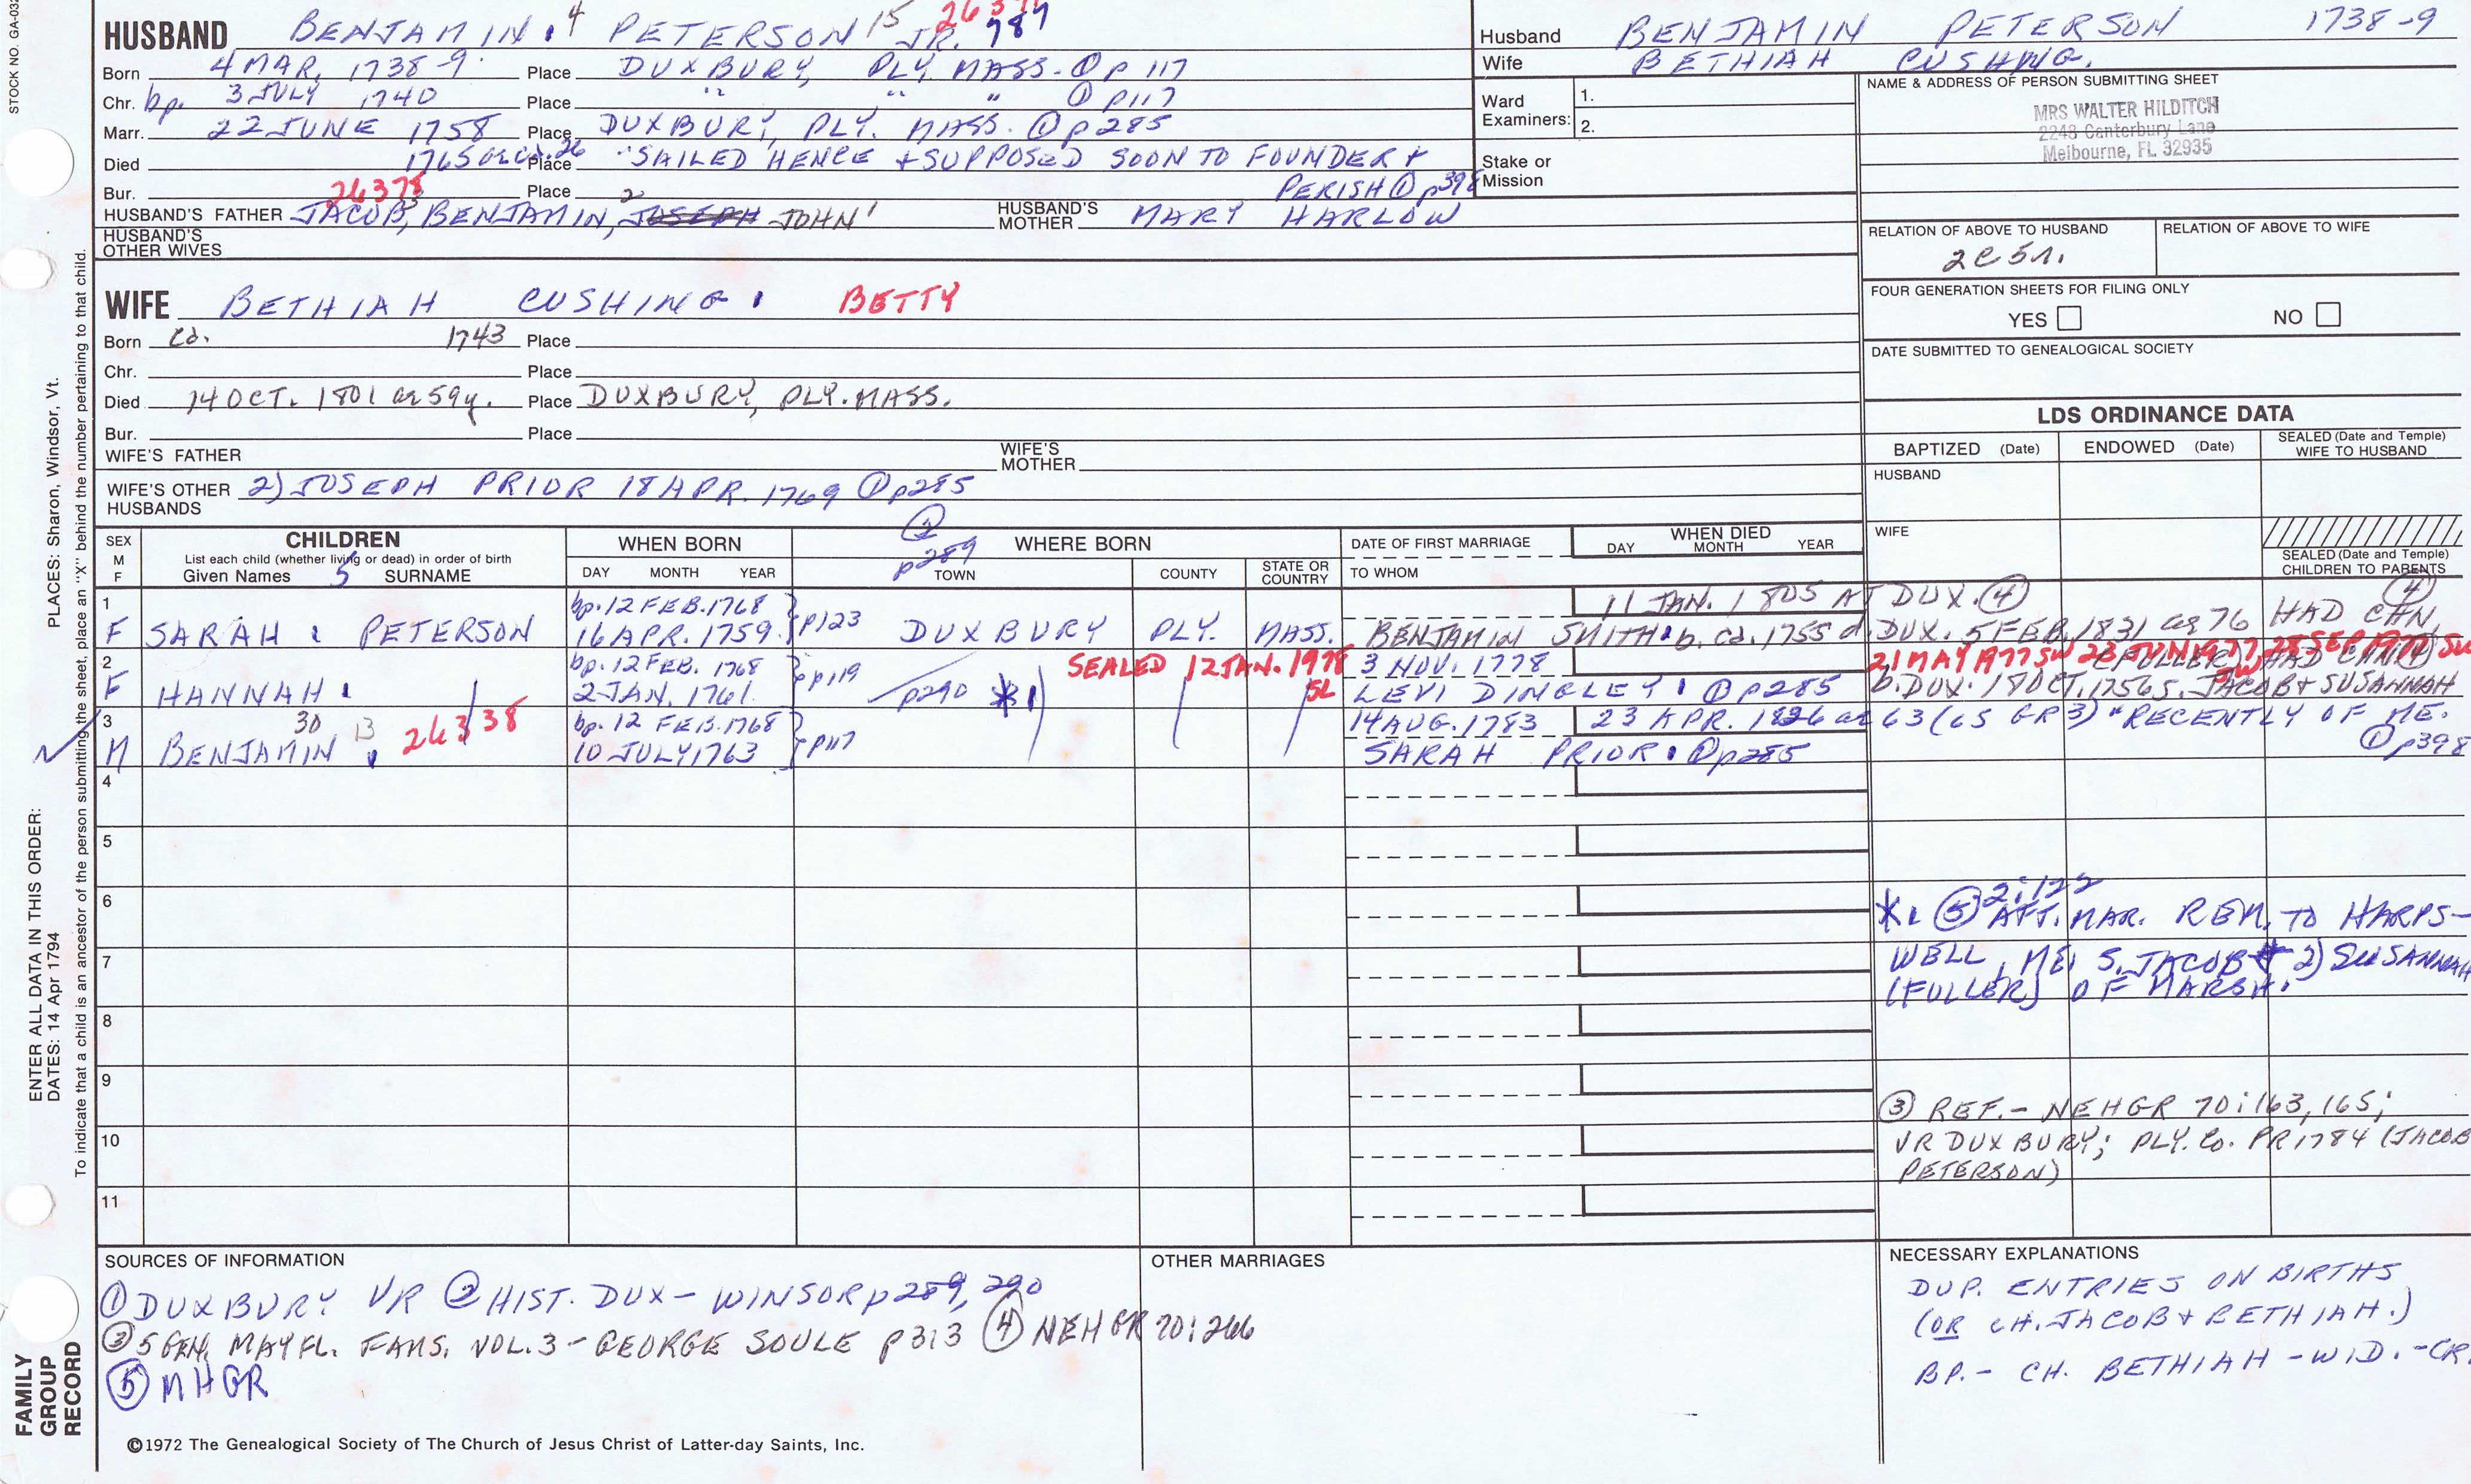 STOCK NO. GA-032
HUSBAND BENJAMIN 4 PETERSON 15 JR. 787
Born 4 MAR. 1738-9 Place DUXBURY, PLY. MASS. ① p 117
Chr. bp. 3 JULY 1740 Place " " " ① p117
Marr. 22 JUNE 1758 Place DUXBURY, PLY. MASS. ① p285
Died 1765 ae ca. 26 Place "SAILED HENCE + SUPPOSED SOON TO FOUNDER +
Bur. Place PERISH ① p398
26378
HUSBAND'S FATHER JACOB, 3 BENJAMIN, 2 JOSEPH JOHN 1 HUSBAND'S MOTHER MARY HARLOW
HUSBAND'S OTHER WIVES
Husband BENJAMIN PETERSON 1738-9
Wife BETHIAH CUSHING.
Ward Examiners: 1.
2.
Stake or Mission
NAME & ADDRESS OF PERSON SUBMITTING SHEET
MRS WALTER HILDITCH
2248 Canterbury Lane
Melbourne, FL 32935
RELATION OF ABOVE TO HUSBAND RELATION OF ABOVE TO WIFE
2C 5r.
FOUR GENERATION SHEETS FOR FILING ONLY
YES NO
DATE SUBMITTED TO GENEALOGICAL SOCIETY
WIFE BETHIAH CUSHING. BETTY
Born Ca. 1743 Place
Chr. Place
Died 14 OCT. 1801 ae 59y. Place DUXBURY, PLY. MASS.
Bur. Place
WIFE'S FATHER WIFE'S MOTHER
WIFE'S OTHER HUSBANDS 2) JOSEPH PRIOR 18 APR. 1769 ① p285
LDS ORDINANCE DATA
BAPTIZED (Date) ENDOWED (Date) SEALED (Date and Temple) WIFE TO HUSBAND
HUSBAND
WIFE
SEALED (Date and Temple) CHILDREN TO PARENTS
SEX M F CHILDREN
List each child (whether living or dead) in order of birth
Given Names 5 SURNAME
WHEN BORN
DAY MONTH YEAR
② p289 WHERE BORN
TOWN COUNTY STATE OR COUNTRY
DATE OF FIRST MARRIAGE
TO WHOM
WHEN DIED
DAY MONTH YEAR
1 bp. 12 FEB. 1768 11 JAN. 1805 AT DUX. ④ ④
F SARAH . PETERSON 16 APR. 1759 p123 DUXBURY PLY. MASS. BENJAMIN SMITH . b. ca. 1755 d. DUX. 5 FEB. 1831 ae 76 HAD CHN.
2 bp. 12 FEB. 1768 p119 SEALED 12 JAN. 1978 SL 3 NOV. 1778 21 MAY 1977 SW (FULLER) HAD CHN ④
F HANNAH . 2 JAN. 1761 p290 *1) LEVI DINGLEY . ① p285 b. DUX. 18 OCT. 1756 S. JACOB + SUSANNAH
3 30 13 26338 bp. 12 FEB. 1768 14 AUG. 1783 23 APR. 1826 ae 63 (65 GR 3) "RECENTLY OF ME.
M BENJAMIN . 10 JULY 1763 p117 SARAH PRIOR . ① p285 ① p398
4
5
6
7
8
9
10
11
*1 ⑤ 2:122 AFT. MAR. REM. TO HARPS-
WELL, ME, S. JACOB + 2) SUSANNAH
(FULLER) OF MARSH.
③ REF. - NEHGR 70:163, 165;
VR DUXBURY; PLY. Co. PR 1784 (JACOB
PETERSON)
SOURCES OF INFORMATION
① DUXBURY VR ② HIST. DUX - WINSOR p 289, 290
③ 5 GEN. MAYFL. FAMS. VOL. 3 - GEORGE SOULE p 313 ④ NEHGR 70:266
⑤ MHGR
OTHER MARRIAGES
NECESSARY EXPLANATIONS
DUP. ENTRIES ON BIRTHS
(OR CH. JACOB + BETHIAH.)
BP. - CH. BETHIAH - WID. - CR.
©1972 The Genealogical Society of The Church of Jesus Christ of Latter-day Saints, Inc.
FAMILY GROUP RECORD
ENTER ALL DATA IN THIS ORDER:
DATES: 14 Apr 1794
PLACES: Sharon, Windsor, Vt.
To indicate that a child is an ancestor of the person submitting the sheet, place an "X" behind the number pertaining to that child.